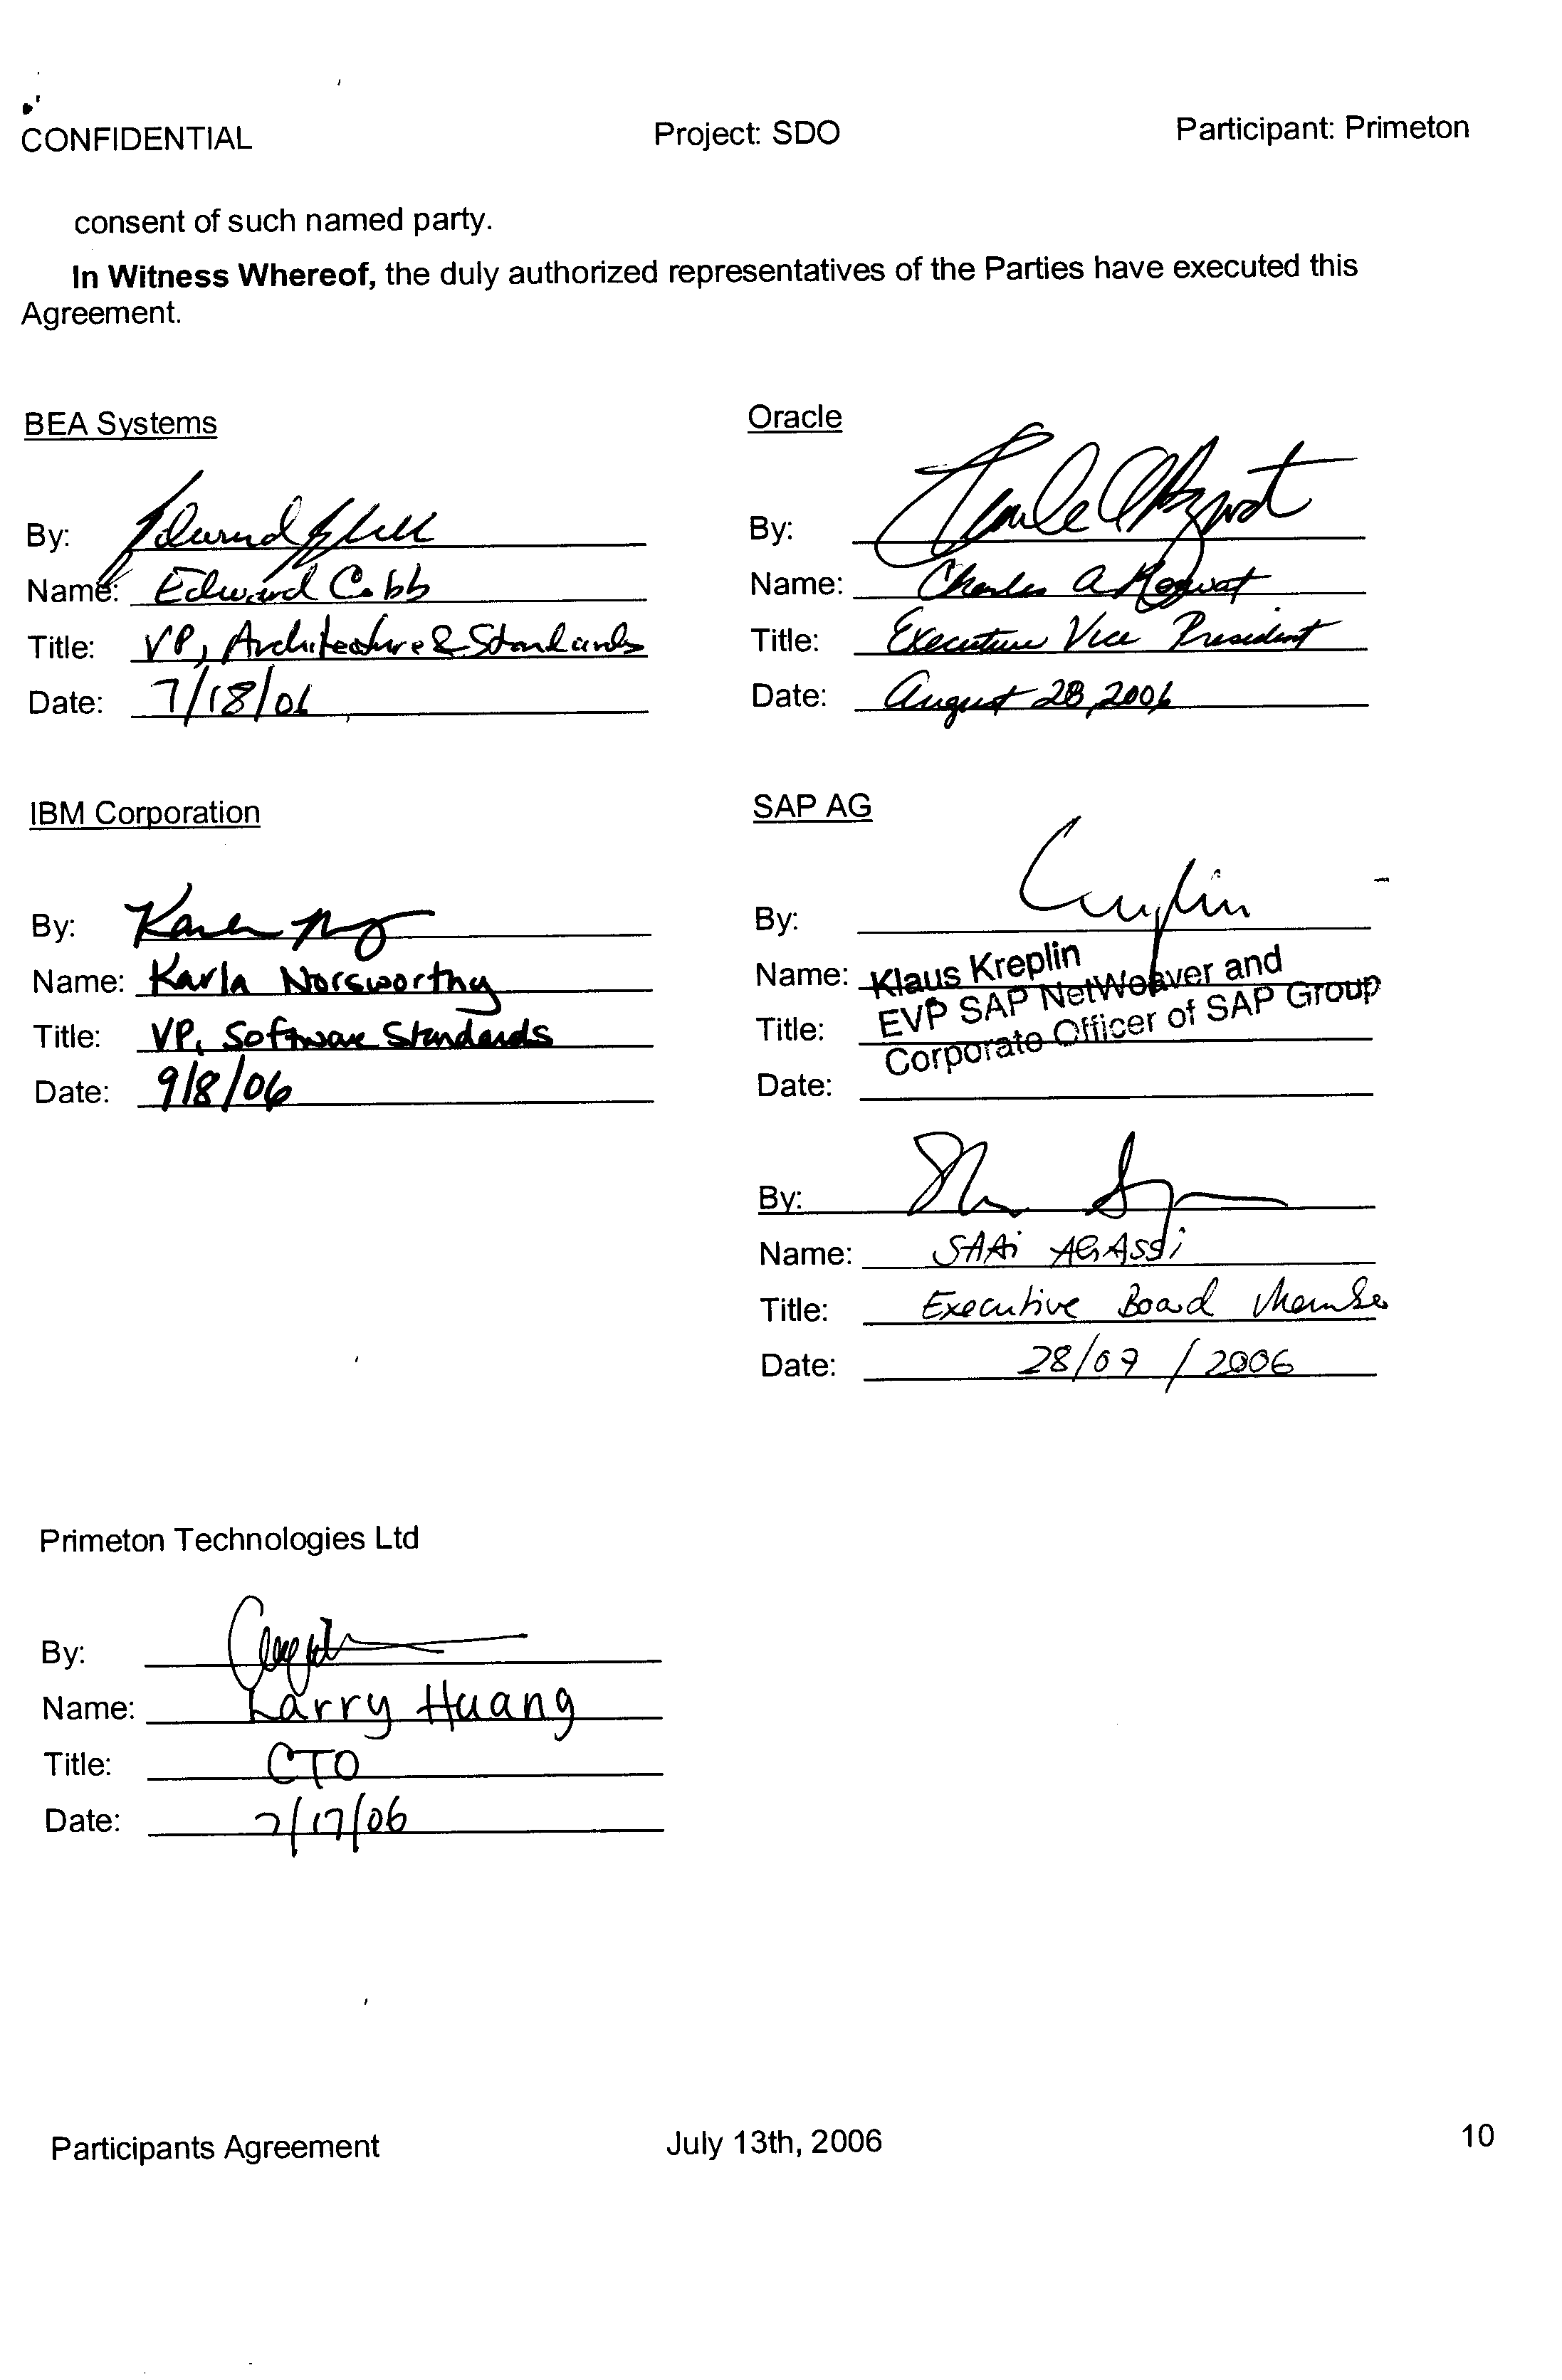 CONFIDENTIAL Project: SDO Participant: Primeton
consent of such named party.
In Witness Whereof, the duly authorized representatives of the Parties have executed this
Agreement.
BEA Systems
By:
Name: Edward Cobb
Title: VP, Architecture & Standards
Date: 7/18/06
Oracle
By:
Name: Charles A Rozwat
Title: Executive Vice President
Date: August 28, 2006
IBM Corporation
By:
Name: Karla Norsworthy
Title: VP, Software Standards
Date: 9/8/06
SAP AG
By:
Name: Klaus Kreplin
EVP SAP NetWeaver and
Title: Corporate Officer of SAP Group
Date:
By:
Name: SHAi AGASSi
Title: Executive Board Member
Date: 28/09/2006
Primeton Technologies Ltd
By:
Name: Larry Huang
Title: CTO
Date: 7/17/06
Participants Agreement July 13th, 2006 10